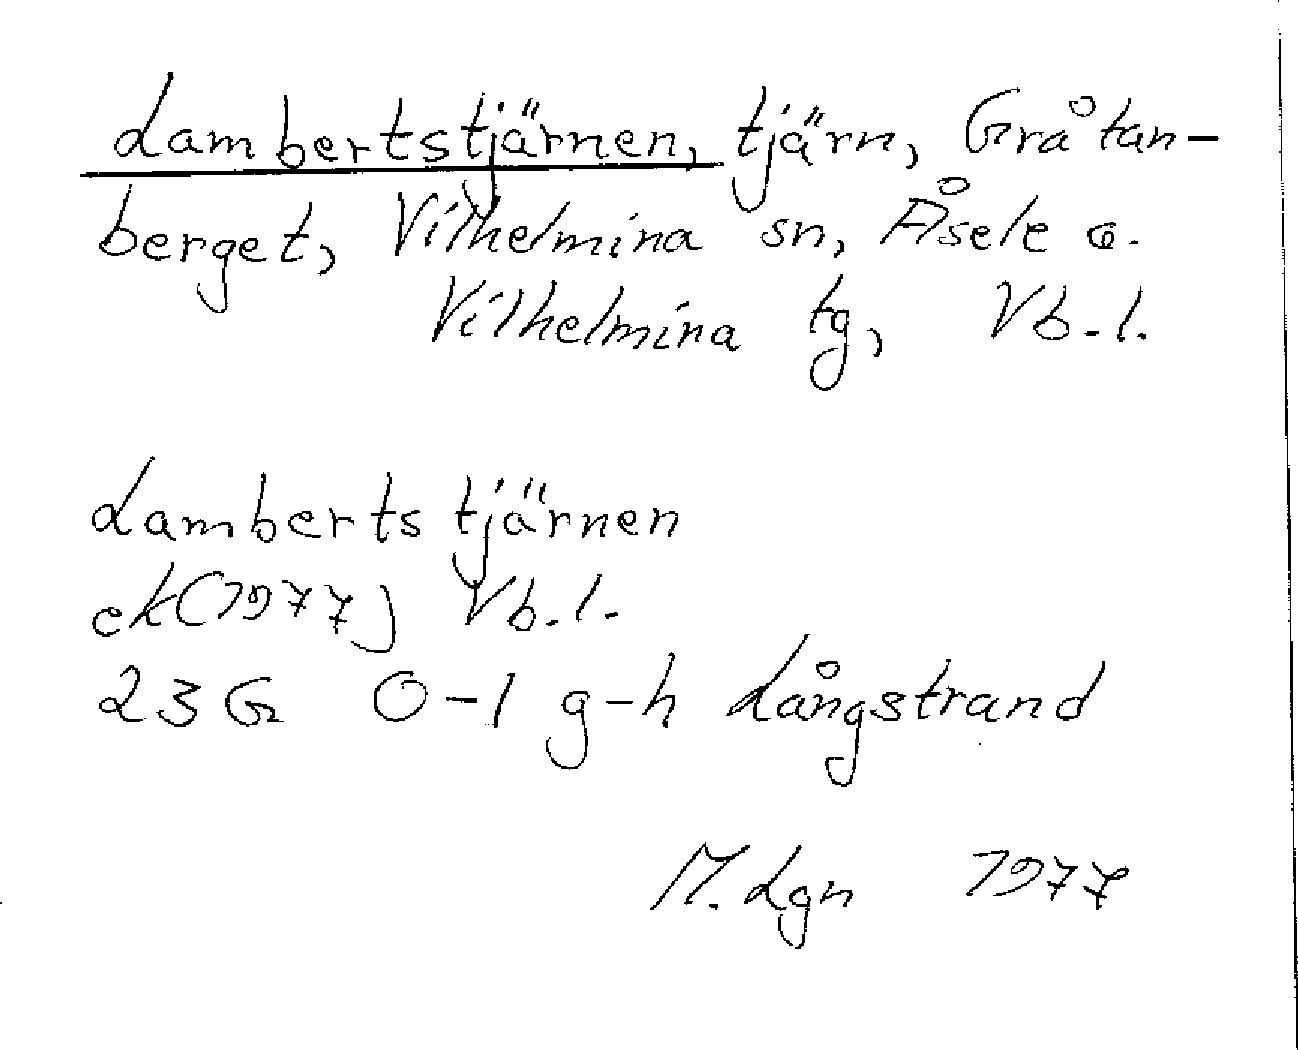 Lambertstjärnen, tjärn, Gråtan-
berget, Vilhelmina sn, Åsele o.
Vilhelmina tg, Vb.l.
Lambertstjärnen
ek(1977) Vb.l.
23 G 0-1 g-h Långstrand
M. Lgn 1977